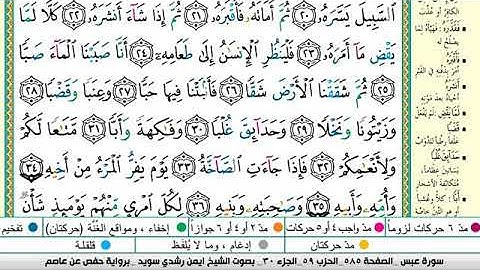 السَّبِيلَ يَسَّرَهُۥ ٢٠ ثُمَّ أَمَاتَهُۥ فَأَقْبَرَهُۥ ٢١ ثُمَّ إِذَا شَآءَ أَنشَرَهُۥ ٢٢ كَلَّا لَمَّا
يَقْضِ مَآ أَمَرَهُۥ ٢٣ فَلْيَنظُرِ ٱلْإِنسَٰنُ إِلَىٰ طَعَامِهِۦٓ ٢٤ أَنَّا صَبَبْنَا ٱلْمَآءَ صَبًّا
٢٥ ثُمَّ شَقَقْنَا ٱلْأَرْضَ شَقًّا ٢٦ فَأَنۢبَتْنَا فِيهَا حَبًّا ٢٧ وَعِنَبًا وَقَضْبًا ٢٨
وَزَيْتُونًا وَنَخْلًا ٢٩ وَحَدَآئِقَ غُلْبًا ٣٠ وَفَٰكِهَةً وَأَبًّا ٣١ مَّتَٰعًا لَّكُمْ
وَلِأَنْعَٰمِكُمْ ٣٢ فَإِذَا جَآءَتِ ٱلصَّآخَّةُ ٣٣ يَوْمَ يَفِرُّ ٱلْمَرْءُ مِنْ أَخِيهِ ٣٤
وَأُمِّهِۦ وَأَبِيهِ ٣٥ وَصَٰحِبَتِهِۦ وَبَنِيهِ ٣٦ لِكُلِّ ٱمْرِئٍ مِّنْهُمْ يَوْمَئِذٍ شَأْنٌ
مدّ ٦ حركات لزوماً مدّ واجب ٤ أو ٥ حركات مدّ ٢ أو ٤ أو ٦ جوازاً إخفاء، ومواقع الغُنَّة (حركتان) تفخيم
مدّ حركتان إدغام، وما لا يُلفَظ قلقلة
سورة عبس _ الصفحة ٥٨٥ _ الحزب ٥٩ _ الجزء ٣٠ _ بصوت الشيخ أيمن رشدي سويد _ برواية حفص عن عاصم